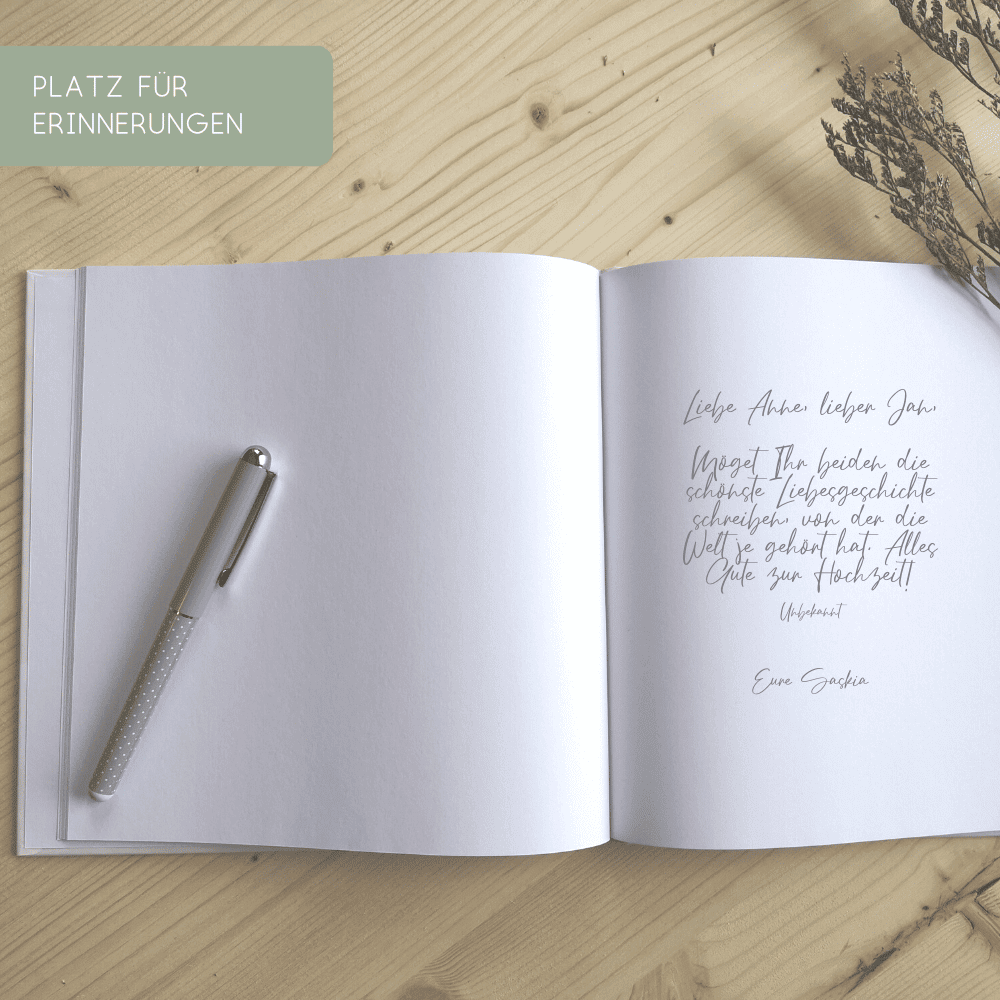 PLATZ FÜR
ERINNERUNGEN
Liebe Anne, lieber Jan,
Möget Ihr beiden die
schönste Liebesgeschichte
schreiben, von der die
Welt je gehört hat. Alles
Gute zur Hochzeit!
Unbekannt
Eure Saskia